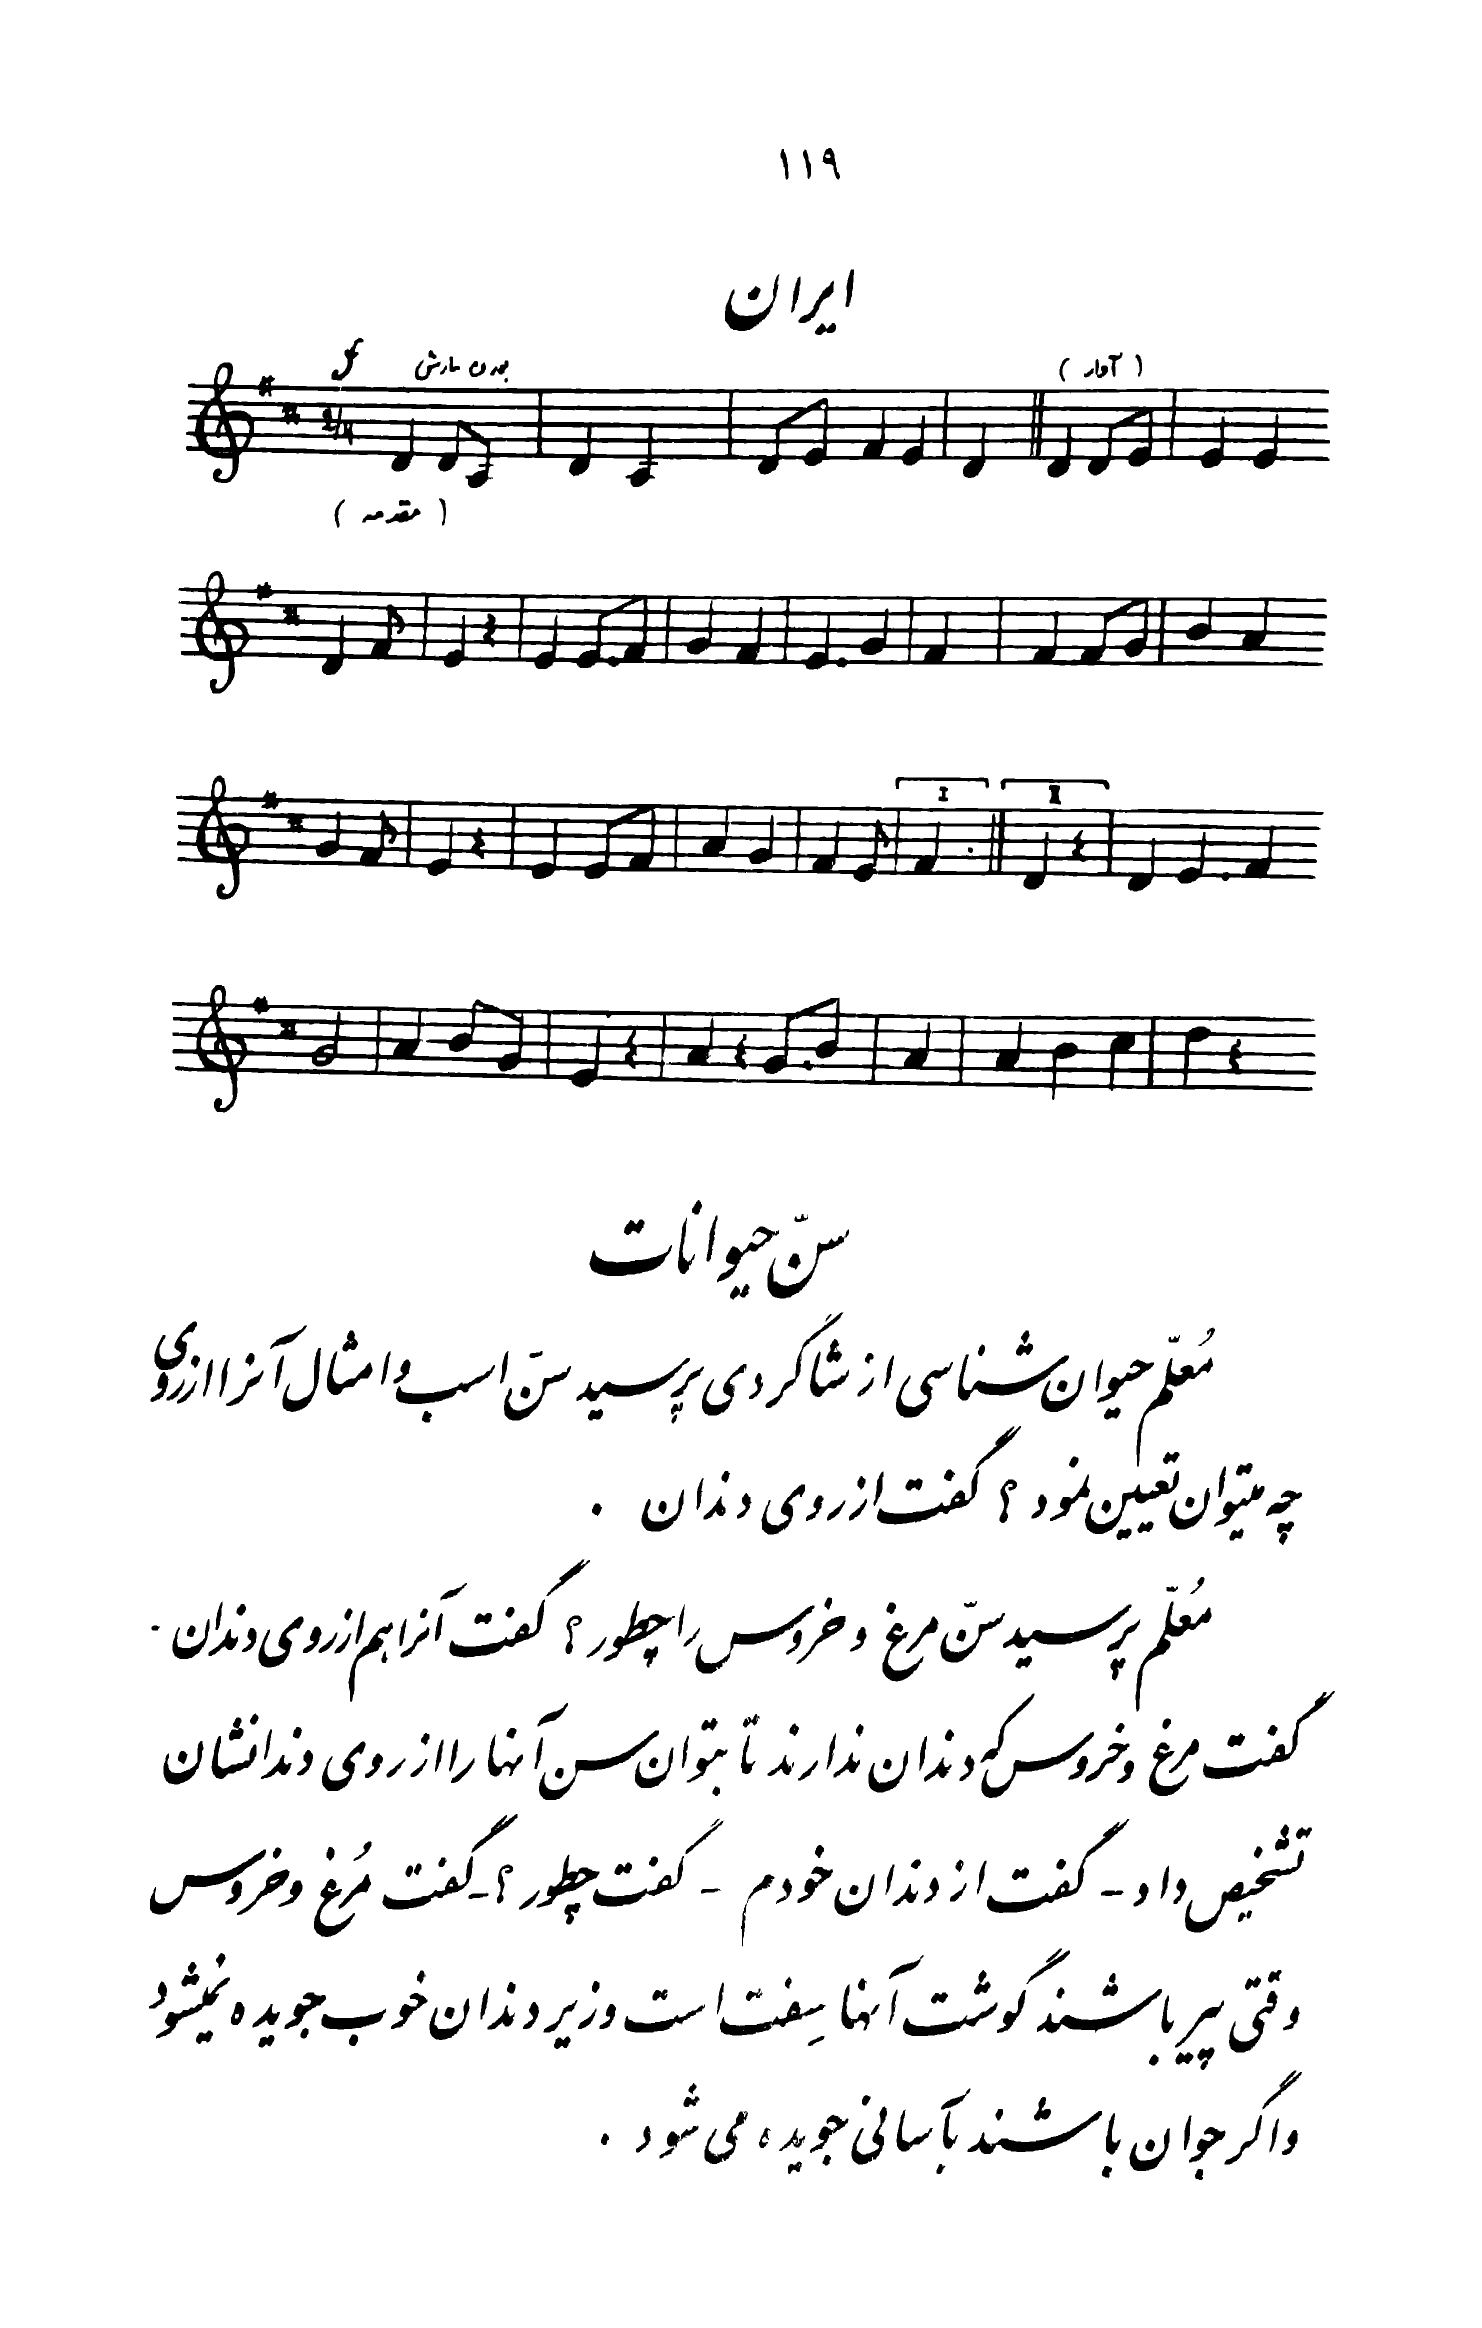 ۱۱۹
ایران
f بهدن مارش ( آواز )
( مقدمه )
I II
سنّ حیوانات
مُعلّم حیوان شناسی از شاگردی پرسید سنّ اسب و امثال آنرا از روی
چه میتوان تعیین نمود ؟ گفت از روی دندان .
مُعلّم پرسید سنّ مرغ و خروس را چطور ؟ گفت آنرا هم از روی دندان .
گفت مرغ و خروس که دندان ندارند تا بتوان سن آنها را از روی دندانشان
تشخیص داد - گفت از دندان خودم - گفت چطور ؟ - گفت مُرغ و خروس
وقتی پیر باشند گوشت آنها سِفت است و زیر دندان خوب جویده نمیشود
و اگر جوان باشند بآسانی جویده می شود .